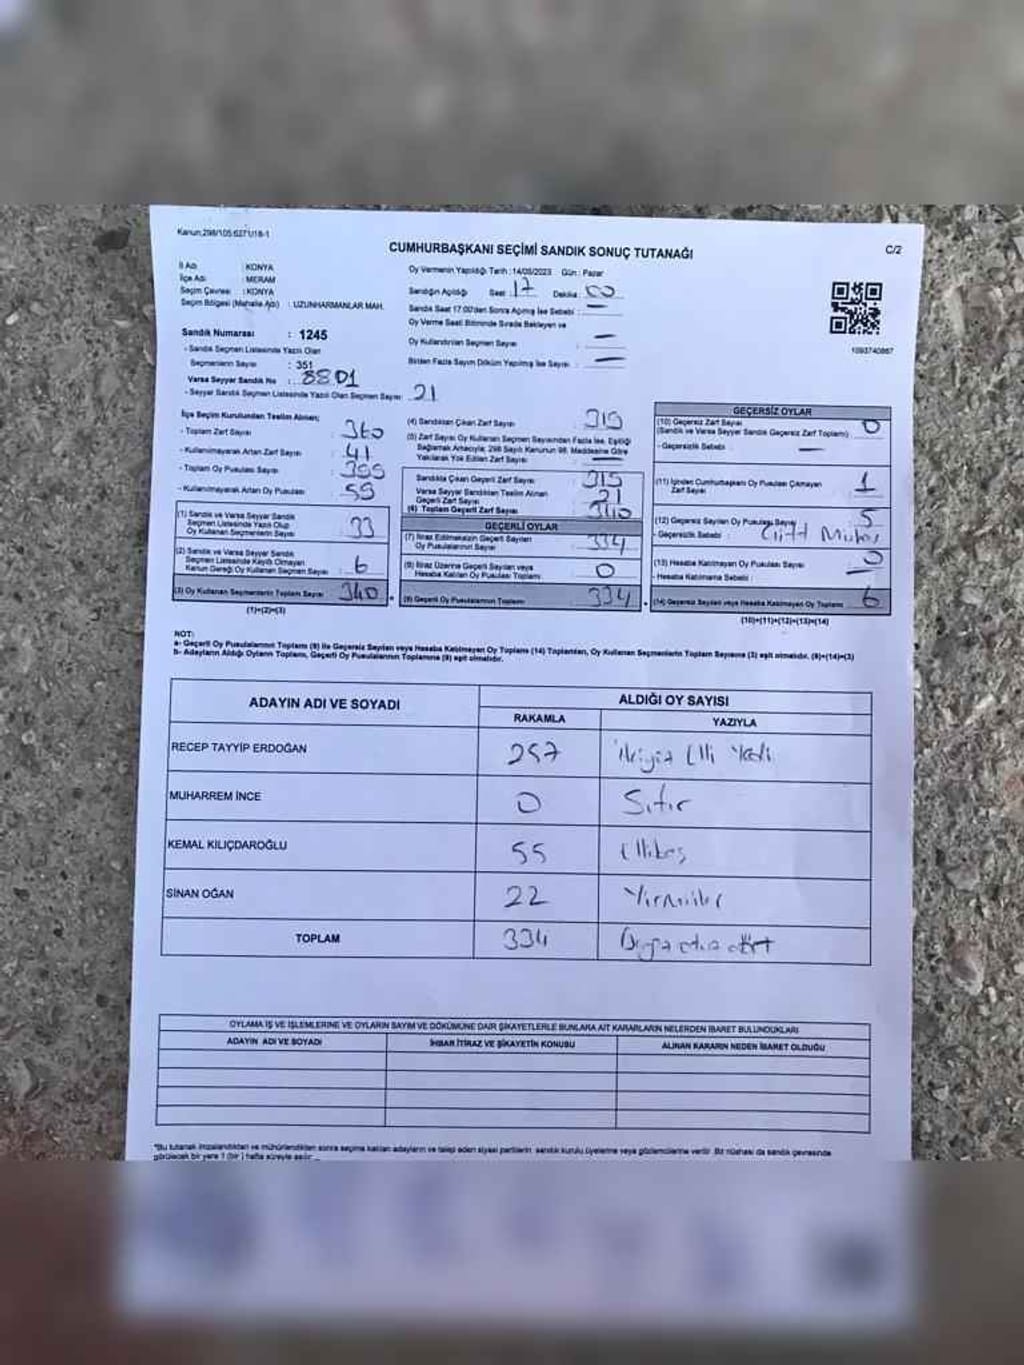 Kanun;298/105;6271/18-1
CUMHURBAŞKANI SEÇİMİ SANDIK SONUÇ TUTANAĞI
C/2
İl Adı : KONYA
İlçe Adı : MERAM
Seçim Çevresi : KONYA
Seçim Bölgesi (Mahalle Adı) : UZUNHARMANLAR MAH.
Sandık Numarası : 1245
- Sandık Seçmen Listesinde Yazılı Olan
Seçmenlerin Sayısı : 351
Varsa Seyyar Sandık No :
- Seyyar Sandık Seçmen Listesinde Yazılı Olan Seçmen Sayısı 21
Oy Vermenin Yapıldığı Tarih : 14/05/2023 Gün : Pazar
Sandığın Açıldığı Saat 17 Dakika 00
Sandık Saat 17.00'den Sonra Açılmış İse Sebebi : —
Oy Verme Saati Bitiminde Sırada Bekleyen ve
Oy Kullandırılan Seçmen Sayısı : —
Birden Fazla Sayım Döküm Yapılmış İse Sayısı : —
1093740867
İlçe Seçim Kurulundan Teslim Alınan;
- Toplam Zarf Sayısı 360
- Kullanılmayarak Artan Zarf Sayısı 41
- Toplam Oy Pusulası Sayısı
- Kullanılmayarak Artan Oy Pusulası
(1) Sandık ve Varsa Seyyar Sandık
Seçmen Listesinde Yazılı Olup
Oy Kullanan Seçmenlerin Sayısı
(2) Sandık ve Varsa Seyyar Sandık
Seçmen Listesinde Kayıtlı Olmayan
Kanun Gereği Oy Kullanan Seçmen Sayısı 6
(3) Oy Kullanan Seçmenlerin Toplam Sayısı 340
(1)+(2)=(3)
(4) Sandıktan Çıkan Zarf Sayısı 319
(5) Zarf Sayısı Oy Kullanan Seçmen Sayısından Fazla İse, Eşitliği
Sağlamak Amacıyla; 298 Sayılı Kanunun 98. Maddesine Göre
Yakılarak Yok Edilen Zarf Sayısı —
Sandıkta Çıkan Geçerli Zarf Sayısı
Varsa Seyyar Sandıktan Teslim Alınan
Geçerli Zarf Sayısı 21
(6) Toplam Geçerli Zarf Sayısı 340
GEÇERLİ OYLAR
(7) İtiraz Edilmeksizin Geçerli Sayılan
Oy Pusulalarının Sayısı 334
(8) İtiraz Üzerine Geçerli Sayılan veya
Hesaba Katılan Oy Pusulası Toplamı 0
(9) Geçerli Oy Pusulalarının Toplamı 334
GEÇERSİZ OYLAR
(10) Geçersiz Zarf Sayısı 0
(Sandık ve Varsa Seyyar Sandık Geçersiz Zarf Toplamı)
- Geçersizlik Sebebi : —
(11) İçinden Cumhurbaşkanı Oy Pusulası Çıkmayan
Zarf Sayısı 1
(12) Geçersiz Sayılan Oy Pusulası Sayısı 5
- Geçersizlik Sebebi :
(13) Hesaba Katılmayan Oy Pusulası Sayısı 0
- Hesaba Katılmama Sebebi :
(14) Geçersiz Sayılan veya Hesaba Katılmayan Oy Toplamı 6
(10)+(11)+(12)+(13)=(14)
NOT:
a- Geçerli Oy Pusulalarının Toplamı (9) ile Geçersiz Sayılan veya Hesaba Katılmayan Oy Toplamı (14) Toplamları, Oy Kullanan Seçmenlerin Toplam Sayısına (3) eşit olmalıdır. (9)+(14)=(3)
b- Adayların Aldığı Oyların Toplamı, Geçerli Oy Pusulalarının Toplamına (9) eşit olmalıdır.
ADAYIN ADI VE SOYADI
ALDIĞI OY SAYISI
RAKAMLA
YAZIYLA
RECEP TAYYİP ERDOĞAN 257 İkiyüz Elli Yedi
MUHARREM İNCE 0 Sıfır
KEMAL KILIÇDAROĞLU 55 Ellibeş
SİNAN OĞAN 22 Yirmiiki
TOPLAM 334
OYLAMA İŞ VE İŞLEMLERİNE VE OYLARIN SAYIM VE DÖKÜMÜNE DAİR ŞİKAYETLERLE BUNLARA AİT KARARLARIN NELERDEN İBARET BULUNDUKLARI
ADAYIN ADI VE SOYADI
İHBAR İTİRAZ VE ŞİKAYETİN KONUSU
ALINAN KARARIN NEDEN İBARET OLDUĞU
*Bu tutanak imzalandıktan ve mühürlendikten sonra seçime katılan adayların ve talep eden siyasi partilerin sandık kurulu üyelerine veya gözlemcilerine verilir. Bir nüshası da sandık çevresinde
görülecek bir yere 1 (bir ) hafta süreyle asılır.